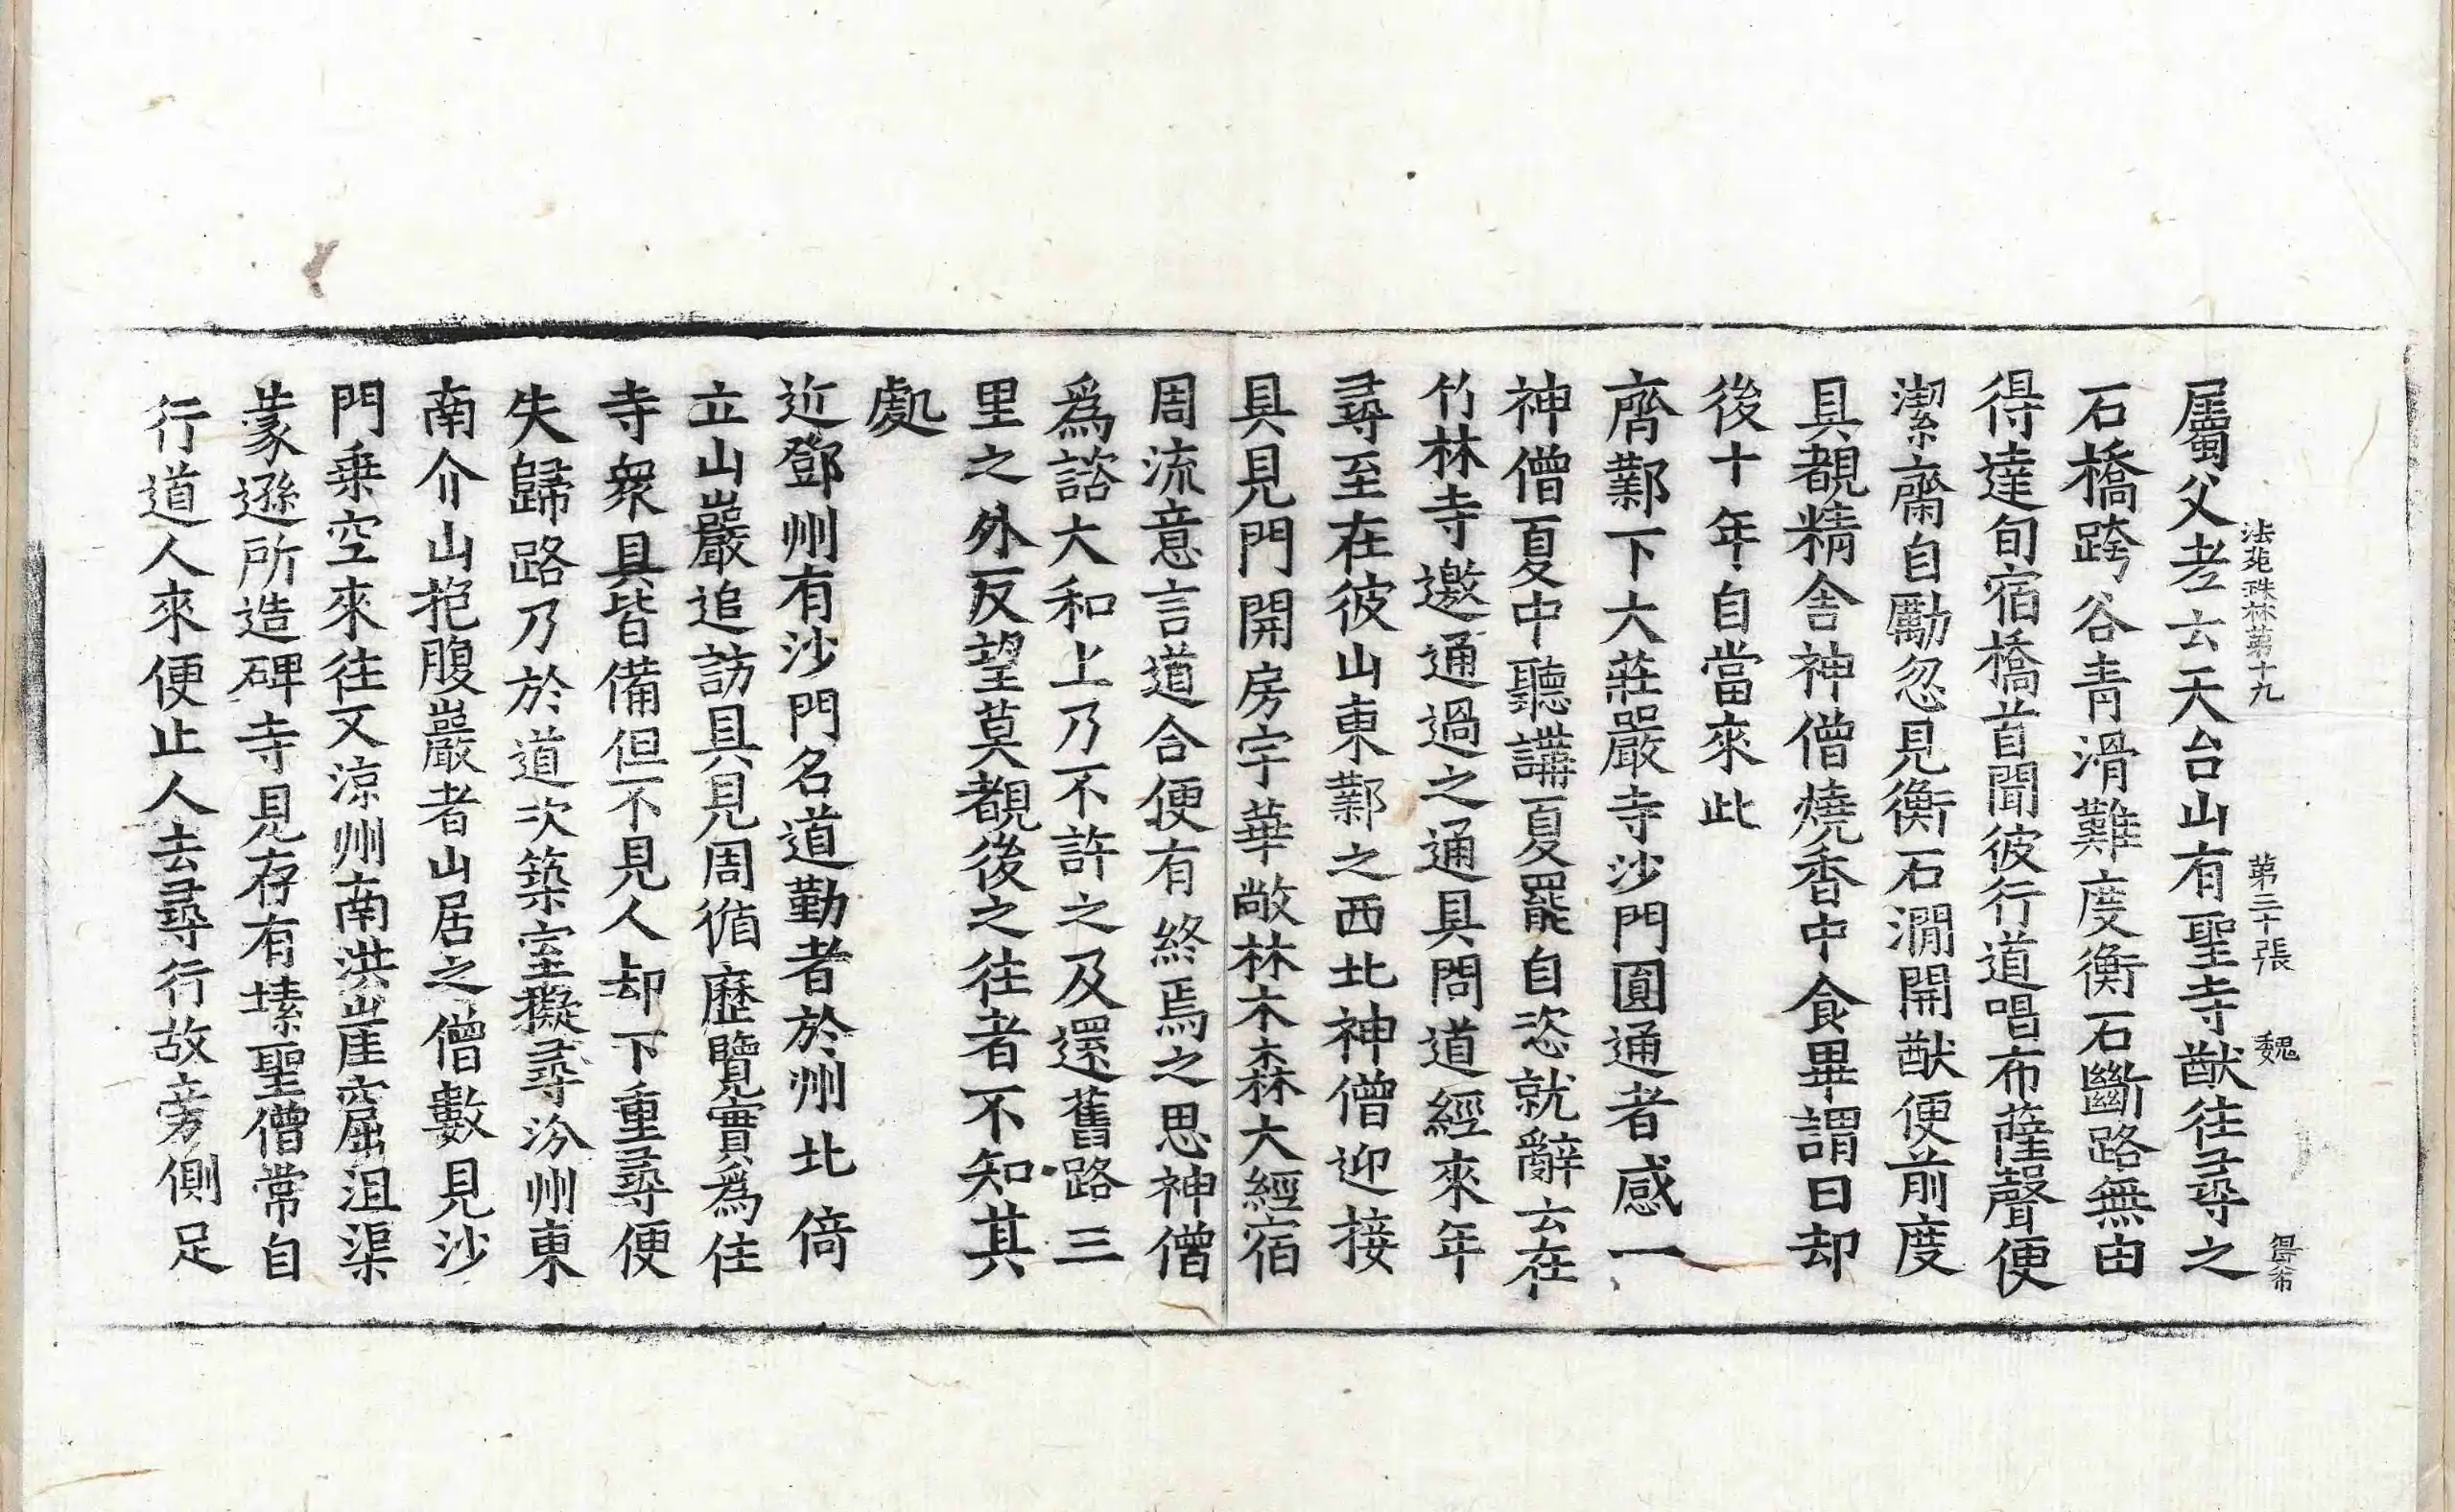 法苑珠林第十九 第二十張 魏
屬父老云天台山有聖寺猷往尋之
石橋跨谷青滑難度衡石斷路無由
得達旬宿橋首聞彼行道唱布薩聲便
潔齋自勵忽見衡石㵎開猷便前度
具覩精舍神僧燒香中食畢謂曰却
後十年自當來此
齊鄴下大莊嚴寺沙門圓通者感一
神僧夏中聽講夏罷自恣就辭云在
竹林寺邀通過之通具問道經來年
尋至在彼山東鄴之西北神僧迎接
具見門開房宇華敞林木森大經宿
周流意言道合便有終焉之思神僧
爲諮大和上乃不許之及還舊路三
里之外反望莫覩後之往者不知其
處
近鄧州有沙門名道勤者於州北倚
立山巖追訪具見周循歷覽實爲住
寺衆具皆備但不見人却下重尋便
失歸路乃於道次築室擬尋汾州東
南介山抱腹巖者山居之僧數見沙
門乗空來往又涼州南洪崖窟沮渠
蒙遜所造碑寺見存有塐聖僧常自
行道人來便止人去尋行故旁側足